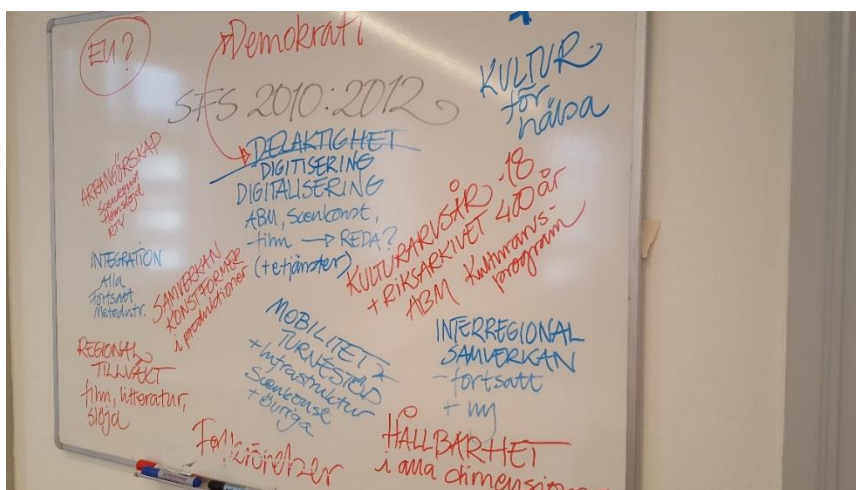 EU?
Demokrati
SFS 2010:2012
KULTUR
för
hälsa
DELAKTIGHET
DIGITISERING
DIGITALISERING
ABM, Scenkonst,
film → REDA?
(+etjänster)
ARRANGÖRSKAP
Scenkonst
Hemslöjd
KTV
INTEGRATION
Alla
Fortsatt
Metodutv.
SAMVERKAN
KONSTFORMER
i produktioner
KULTURARVSÅR -18
+ RIKSARKIVET 400 år
ABM Kulturarvs-
program
REGIONAL
TILLVÄXT
film, litteratur,
slöjd
MOBILITET
TURNÉSTÖD
+ Infrastruktur
Scenkonst
+ övriga
INTERREGIONAL
SAMVERKAN
- fortsatt
+ ny
HÅLLBARHET
i alla dimensioner